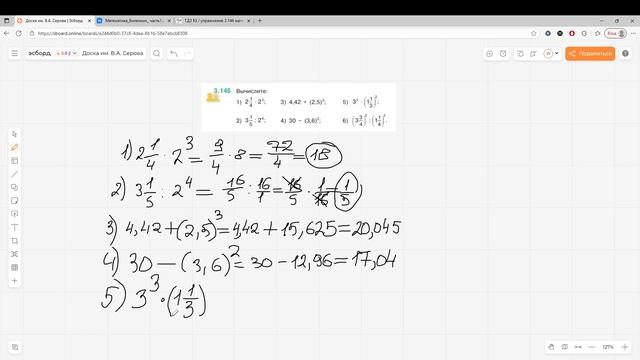 Доска им. В.А. Серова | Эсборд
Математика_Виленкин_ часть1
ГДЗ 6) / упражнение 3.146 мате
https://sboard.online/boards/
Вход
эсборд
Доска им. В.А. Серова
Поделиться
3.146 Вычислите:
1) 2 1/4 · 2³; 3) 4,42 + (2,5)³; 5) 3³ · (1 1/3)²;
2) 3 1/5 : 2⁴; 4) 30 − (3,6)²; 6) (3 3/4)² : (1 1/4)².
1) 2 1/4 · 2³ = 9/4 · 8 = 72/4 = 18
2) 3 1/5 : 2⁴ = 16/5 : 16/1 = 16/5 · 1/16 = 1/5
3) 4,42 + (2,5)³ = 4,42 + 15,625 = 20,045
4) 30 − (3,6)² = 30 − 12,96 = 17,04
5) 3³ · (1 1/3)
127%